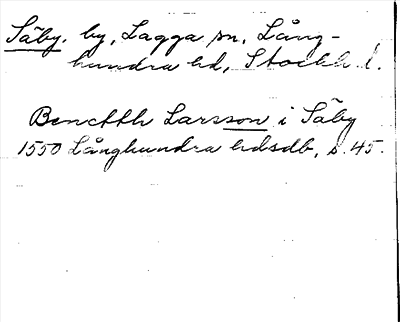 Säby. by, Lagga sn, Lång-
hundra hd, Stockh. l.
Benctth Larsson i Säby
1550 Långhundra hdsdb, s. 45.